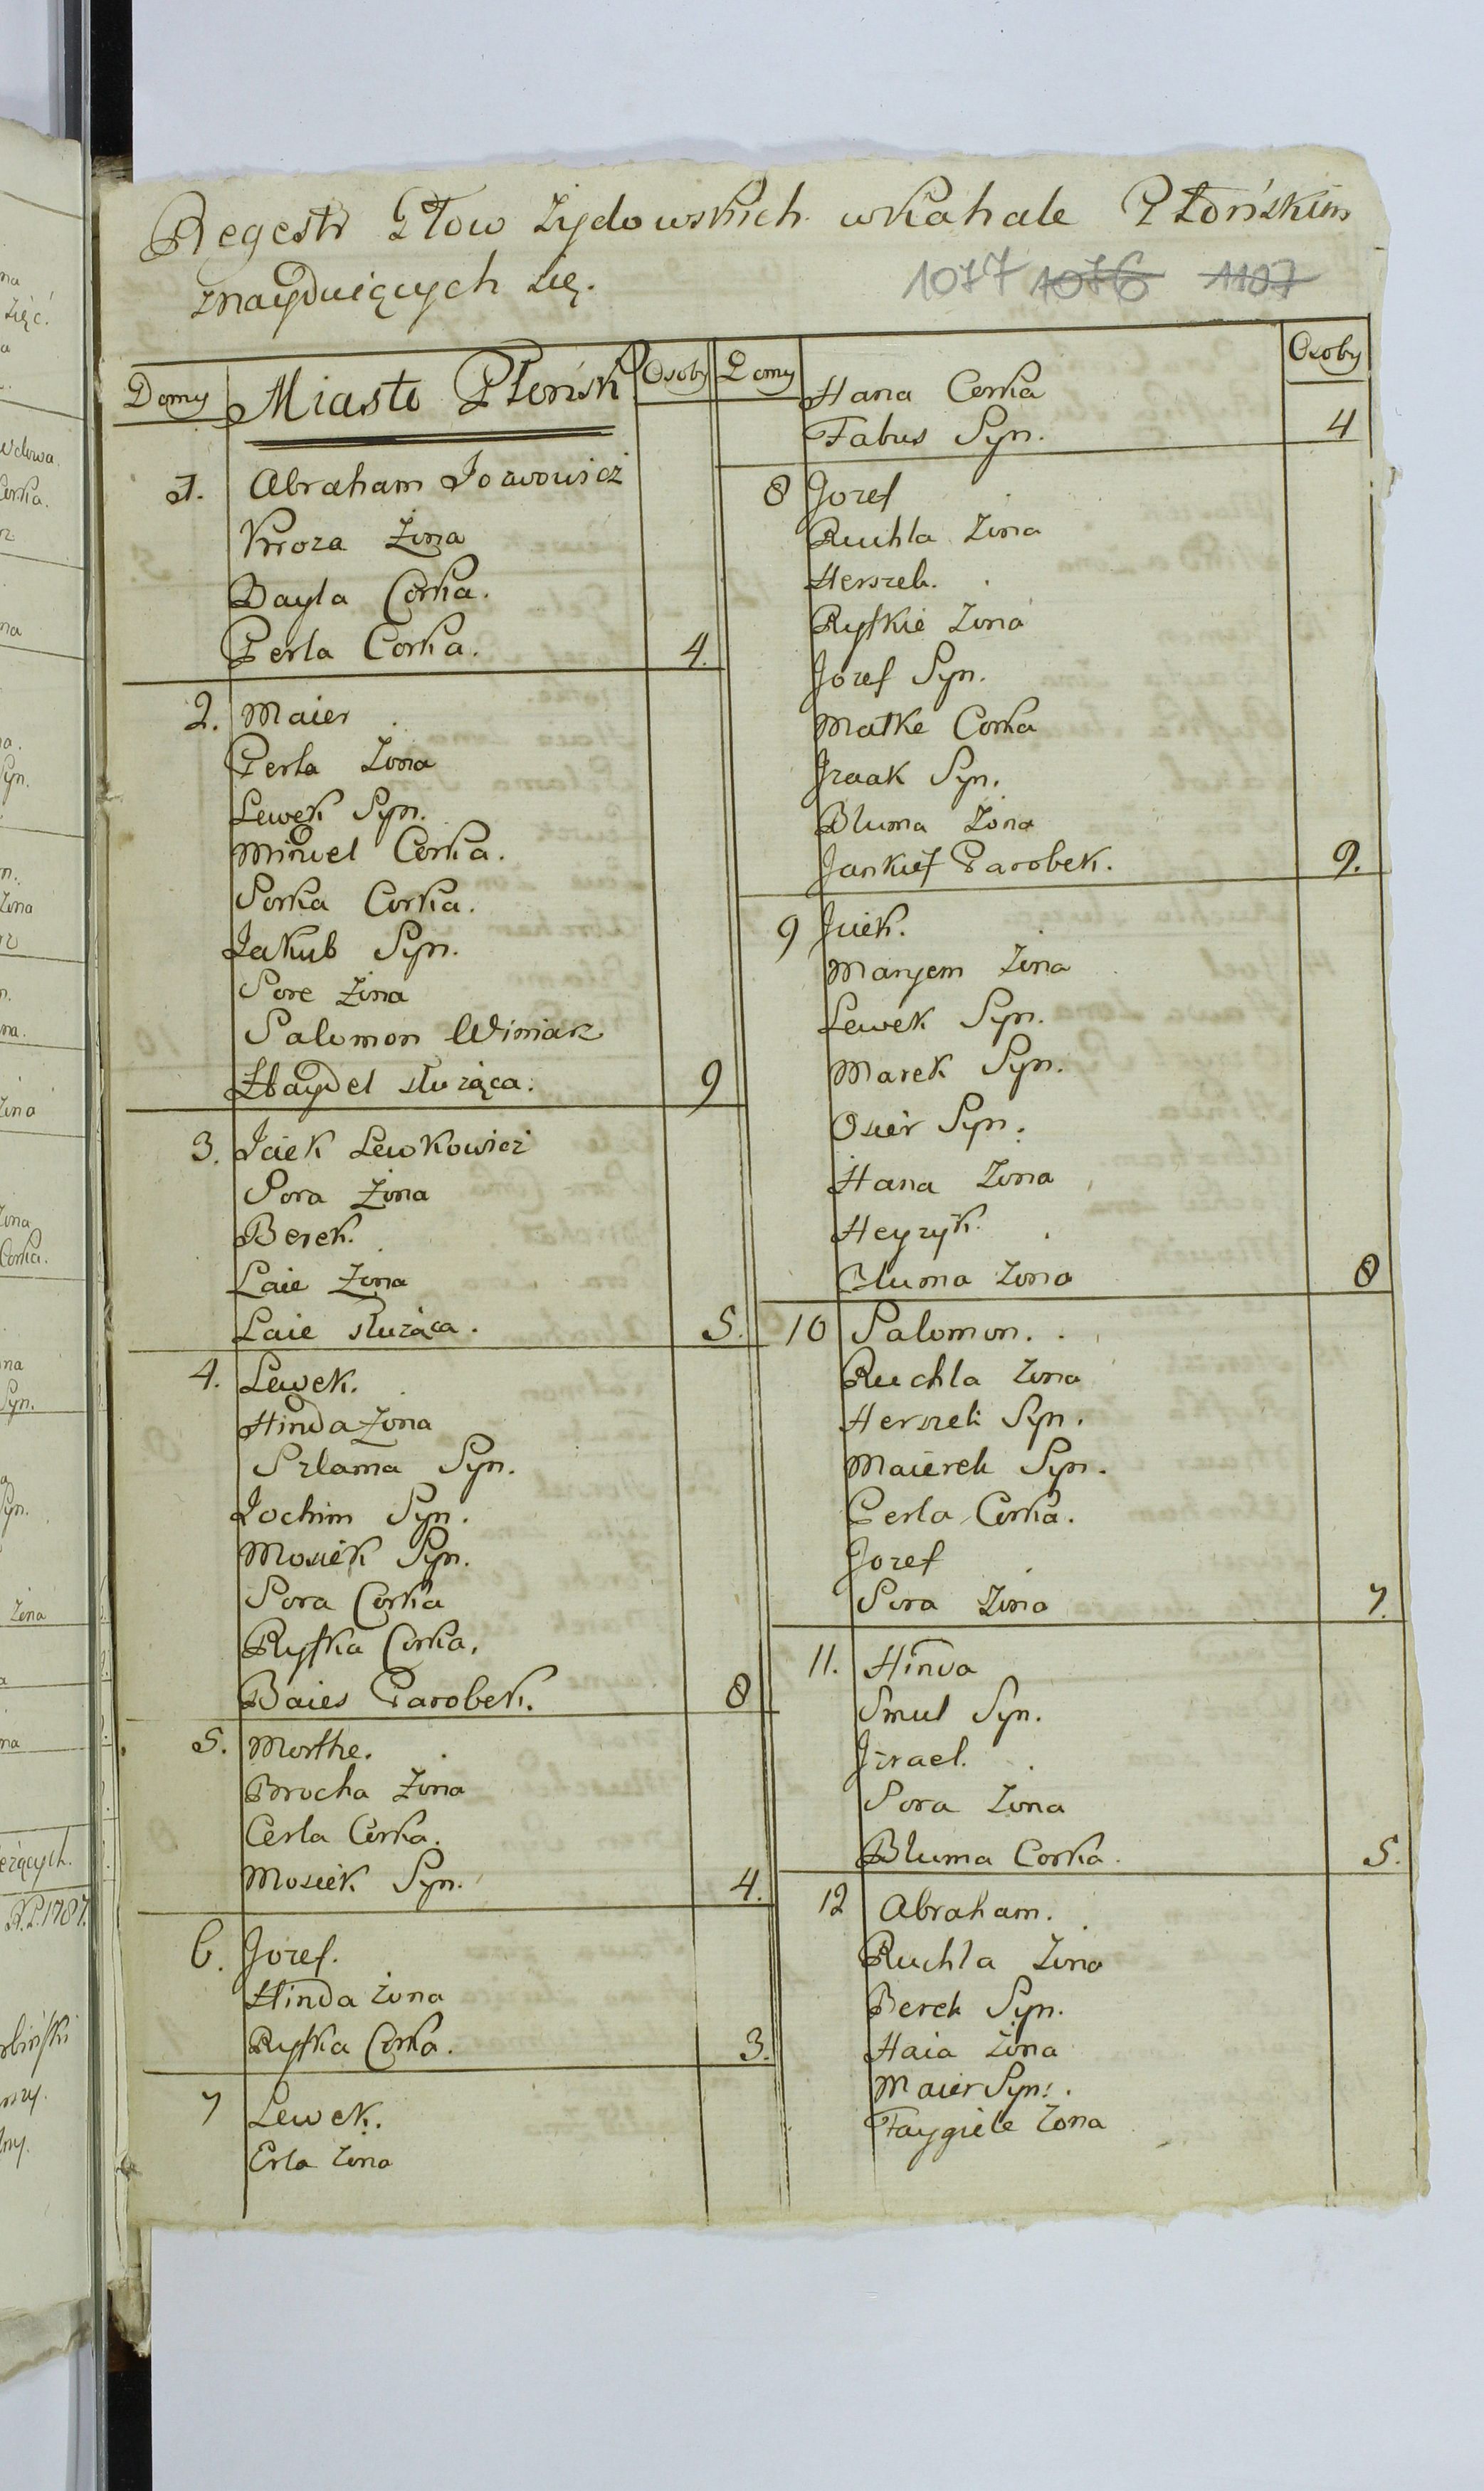 Regestr Głow Zydowskich wKahale Płońskim
znayduiących się.
1077 1076 1107
Domy Miasto Płońsk Osoby
1. Abraham Jozwowicz
Kroza Żona
Dayla Corka.
Perla Corka. 4.
2. Maier
Perla Zona
Lewek Syn.
Mindel Corka.
Sorka Corka.
Jakub Syn.
Sore Żona
Salomon Winiarz
Haydel służąca. 9
3. Jcek Lewkowicz
Sora Żona
Berek.
Laie Żona
Laie służąca. 5.
4. Lewek.
Hinda Zona
Szlama Syn.
Jochim Syn.
Mosiek Syn.
Sora Corka
Ryfka Corka.
Baies Parobek. 8
5. Morthe.
Brocha Zona
Cerla Corka.
Mosiek Syn. 4.
6. Jozef.
Hinda Żona
Ryfka Corka. 3.
7 Lewek.
Erla Zona
Domy Osoby
Hana Corka
Fabus Syn. 4
8 Jozef
Ruchla Żona
Herszek.
Ryfkie Zona
Jozef Syn.
Matke Corka
Jzaak Syn.
Bluma Żona
Jankief Parobek. 9.
9 Jcek.
Maryem Żona
Lewek Syn.
Marek Syn.
Osier Syn.
Hana Zona
Heyzyk.
Bluma Zona 8
10 Salomon.
Ruchla Żona
Herszek Syn.
Maierek Syn.
Perla Corka.
Jozef
Sora Zona 7.
11. Hinda
Smul Syn.
Jzrael.
Sora Zona
Bluma Corka. 5.
12 Abraham.
Ruchla Zona
Berek Syn.
Haia Żona
Maier Syn.
Faygiele Zona